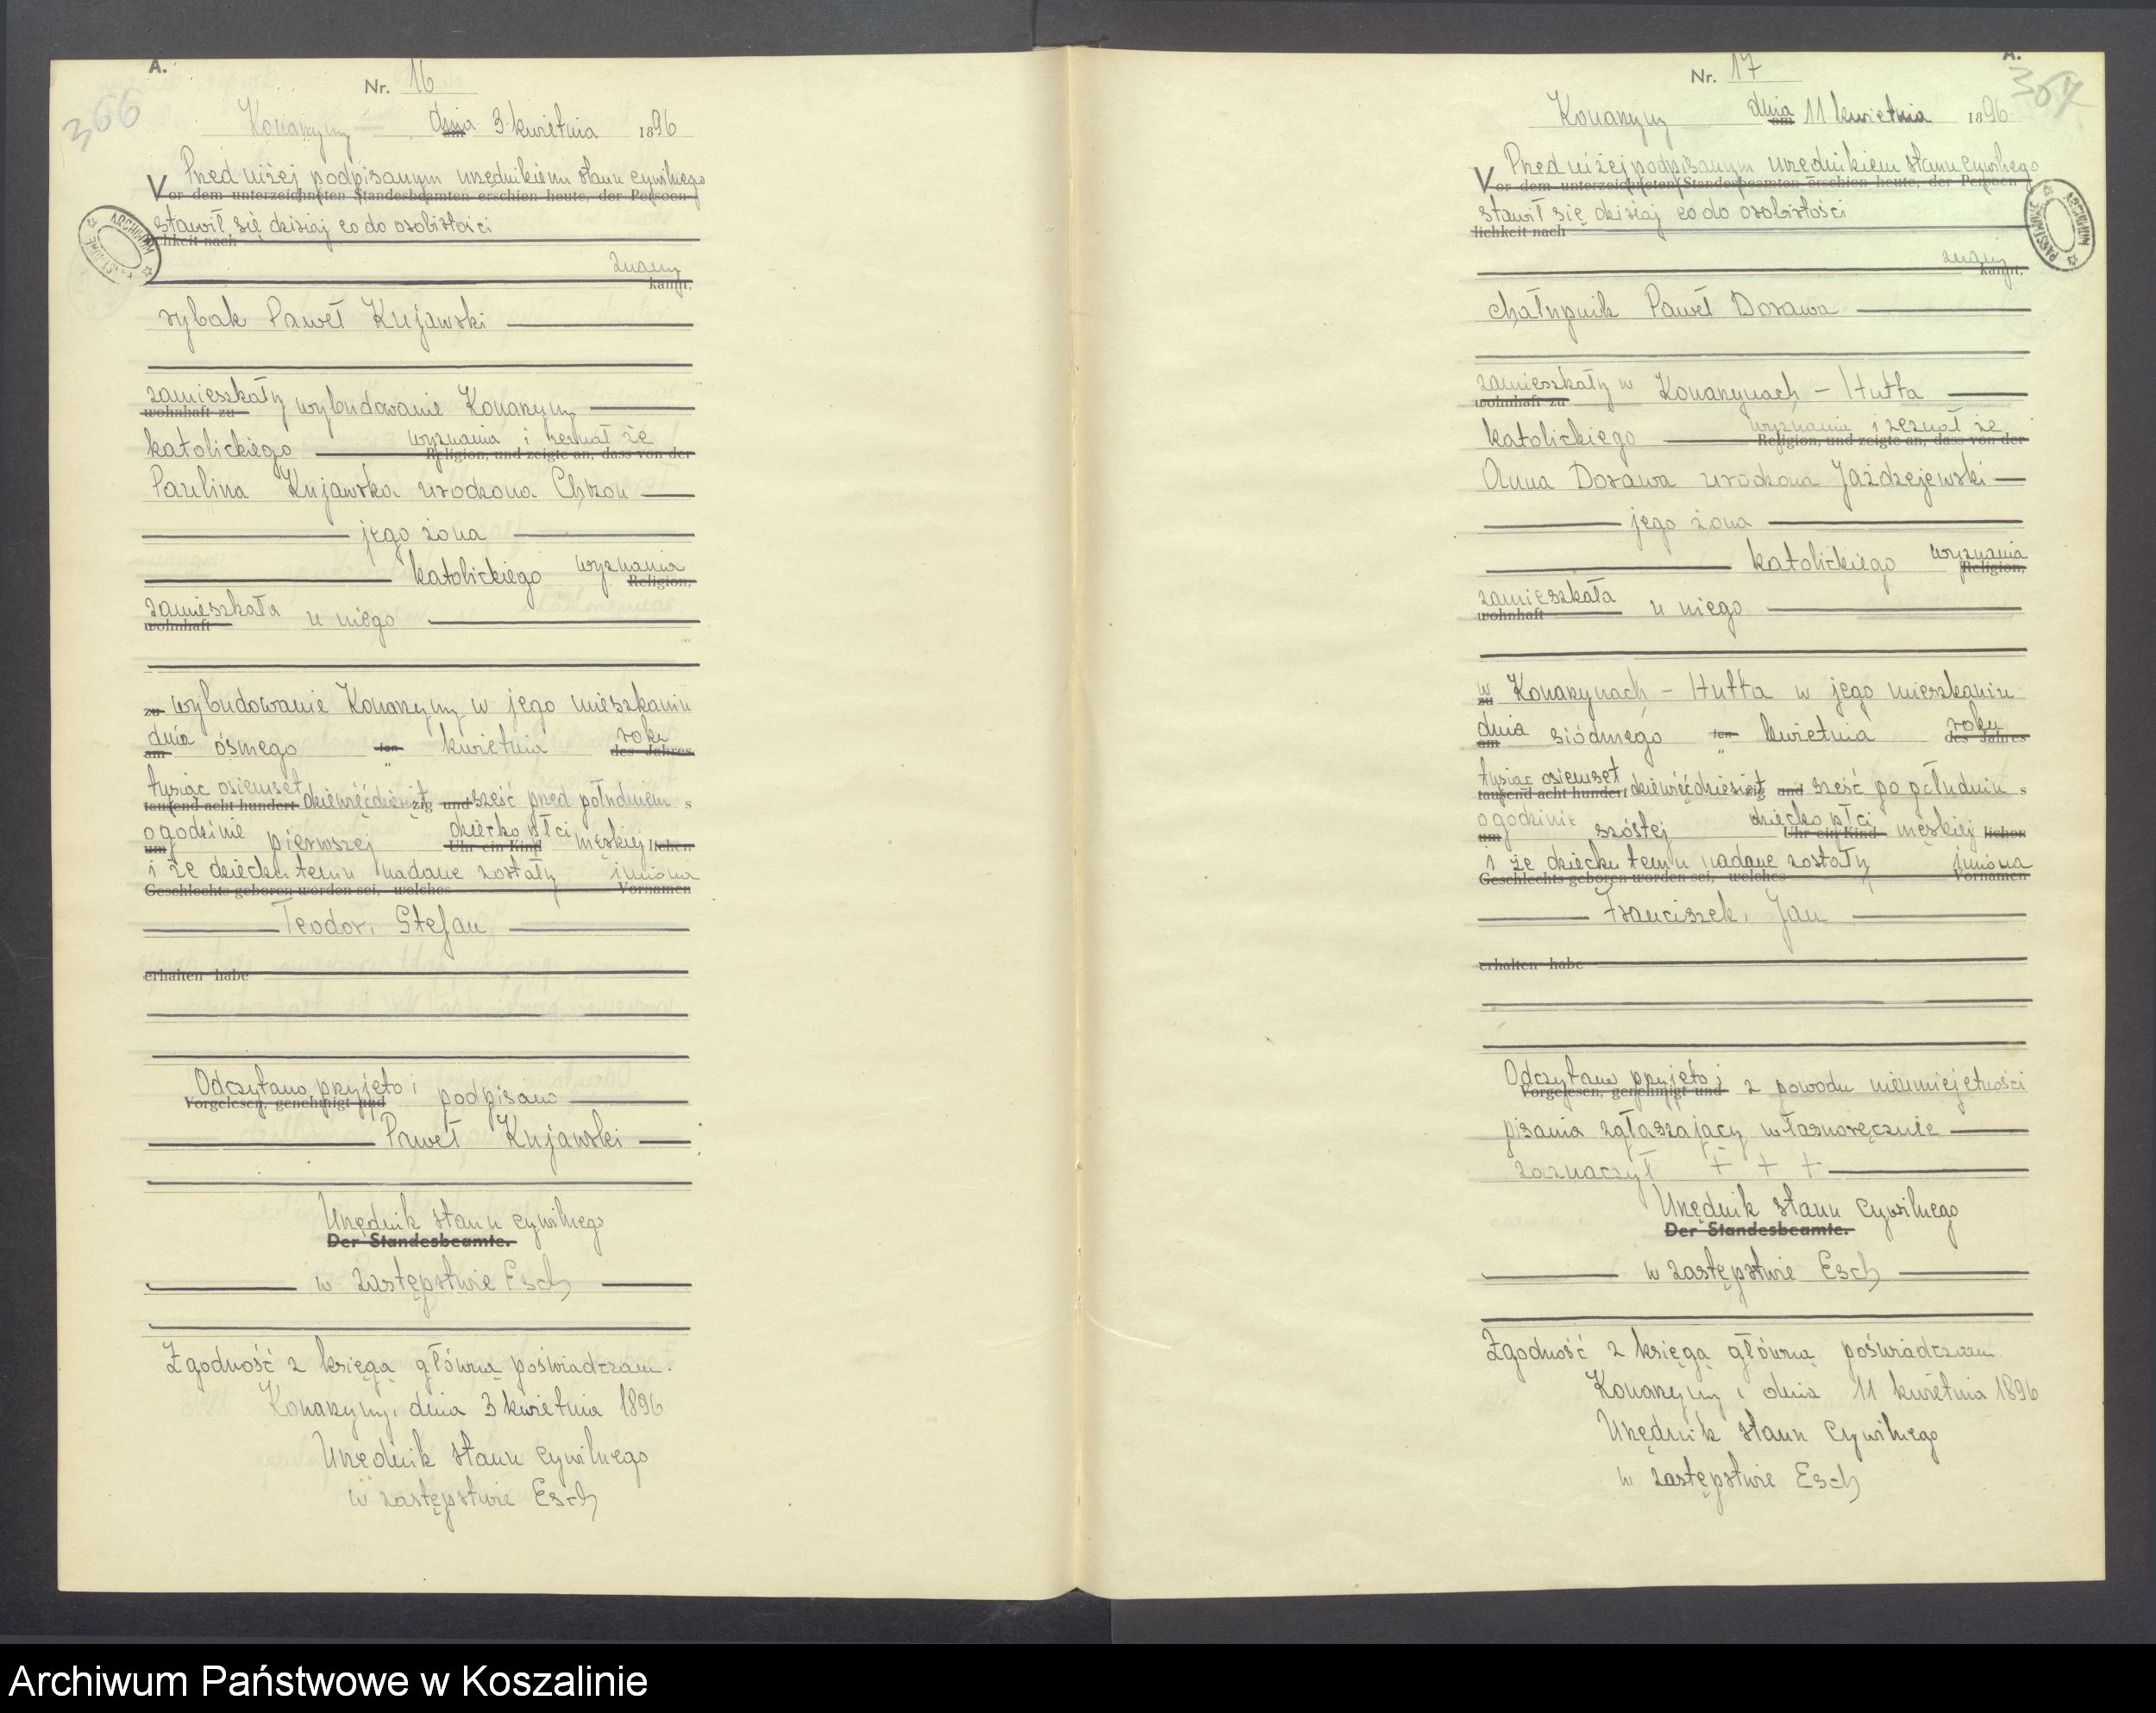 A.
Nr. 16
366
Konarzyny dnia 3 kwietnia 1896
am
Przed niżej podpisanym urzędnikiem stanu cywilnego
Vor dem unterzeichneten Standesbeamten erschien heute, der Persoen-
stawił się dzisiaj co do osobistości
lichkeit nach
znany
kannt,
rybak Paweł Kujawski
zamieszkały wybudowanie Konarzyny
wohnhaft zu
katolickiego wyznania i zeznał że
Religion, und zeigte an, dass von der
Paulina Kujawska urodzona Chzon
jego żona
katolickiego wyznania
Religion,
zamieszkała u niego
wohnhaft
zu wybudowanie Konarzyny w jego mieszkaniu
dnia ósmego ten kwietnia roku
am des Jahres
tysiąc osiemset dziewięćdziesiąt sześć przed południem s
tausend acht hundert zig und
o godzinie pierwszej dziecko płci męskiej
um Uhr ein Kind lichen
i że dziecku temu nadane zostały imiona
Geschlechts geboren worden sei, welches Vornamen
Teodor, Stefan
erhalten habe
Odczytano przyjęto i podpisano
Vorgelesen, genehmigt und
Paweł Kujawski
Urzędnik stanu cywilnego
Der Standesbeamte.
w zastępstwie Esch
Zgodność z księgą główną poświadczam.
Konarzyny, dnia 3 kwietnia 1896
Urzędnik stanu cywilnego
w zastępstwie Esch
A.
Nr. 17
367
Konarzyny dnia 11 kwietnia 1896
am
Przed niżej podpisanym urzędnikiem stanu cywilnego
Vor dem unterzeichneten Standesbeamten erschien heute, der Persoen-
stawił się dzisiaj co do osobistości
lichkeit nach
znany
kannt,
chałupnik Paweł Dorawa
zamieszkały w Konarzynach - Hutta
wohnhaft zu
katolickiego wyznania i zeznał że
Religion, und zeigte an, dass von der
Anna Dorawa urodzona Jażdzejewski
jego żona
katolickiego wyznania
Religion,
zamieszkała u niego
wohnhaft
w Konarzynach - Hutta w jego mieszkaniu
zu
dnia siódmego ten kwietnia roku
am des Jahres
tysiąc osiemset dziewięćdziesiąt sześć po południu s
tausend acht hundert zig und
o godzinie szóstej dziecko płci męskiej
um Uhr ein Kind lichen
i że dziecku temu nadane zostały imiona
Geschlechts geboren worden sei, welches Vornamen
Franciszek, Jan
erhalten habe
Odczytano przyjęto i z powodu nieumiejętności
Vorgelesen, genehmigt und
pisania zgłaszający własnoręcznie
zaznaczył + + +
Urzędnik stanu cywilnego
Der Standesbeamte.
w zastępstwie Esch
Zgodność z księgą główną poświadczam
Konarzyny, dnia 11 kwietnia 1896
Urzędnik stanu cywilnego
w zastępstwie Esch
Archiwum Państwowe w Koszalinie